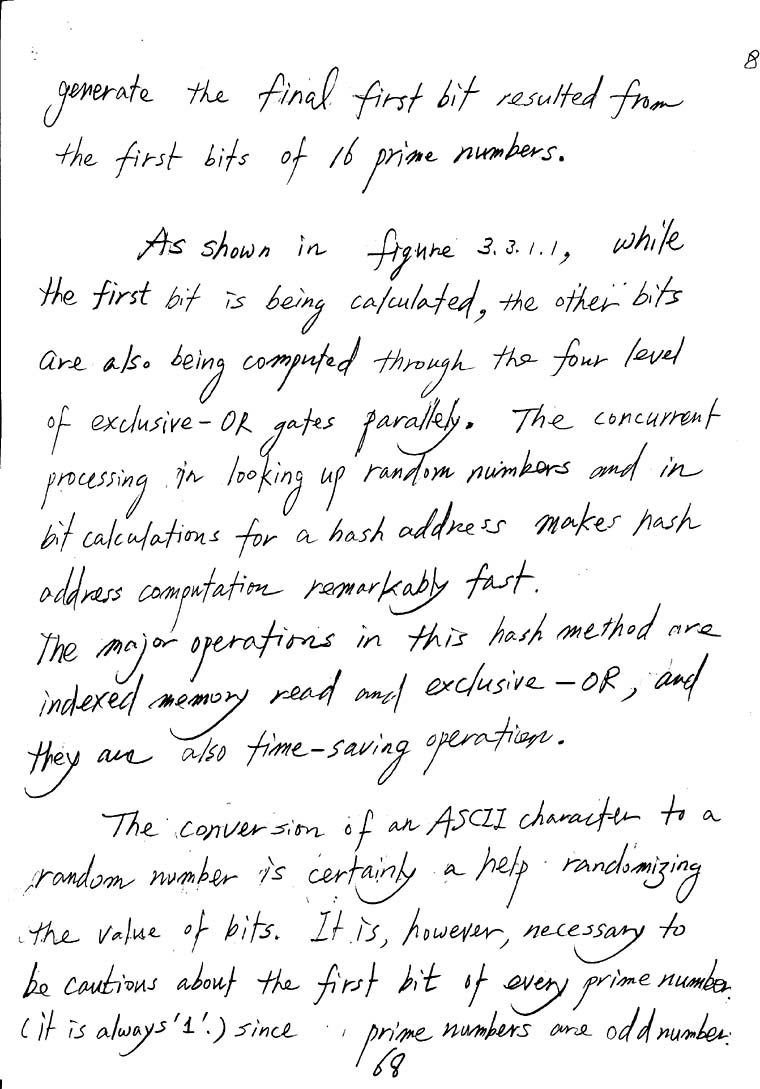 8
generate the final first bit resulted from
the first bits of 16 prime numbers.
As shown in figure 3.3.1.1, while
the first bit is being calculated, the other bits
are also being computed through the four level
of exclusive-OR gates parallely. The concurrent
processing in looking up random numbers and in
bit calculations for a hash address makes hash
address computation remarkably fast.
The major operations in this hash method are
indexed memory read and exclusive-OR, and
they are also time-saving operation.
The conversion of an ASCII character to a
random number is certainly a help randomizing
the value of bits. It is, however, necessary to
be cautious about the first bit of every prime number
(it is always '1'.) since prime numbers are odd number.
68